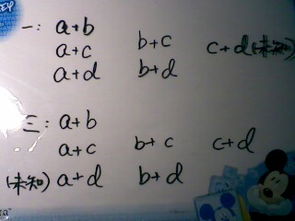 一: a+b
a+c b+c c+d(未知)
a+d b+d
三: a+b
a+c b+c c+d
(未知) a+d b+d